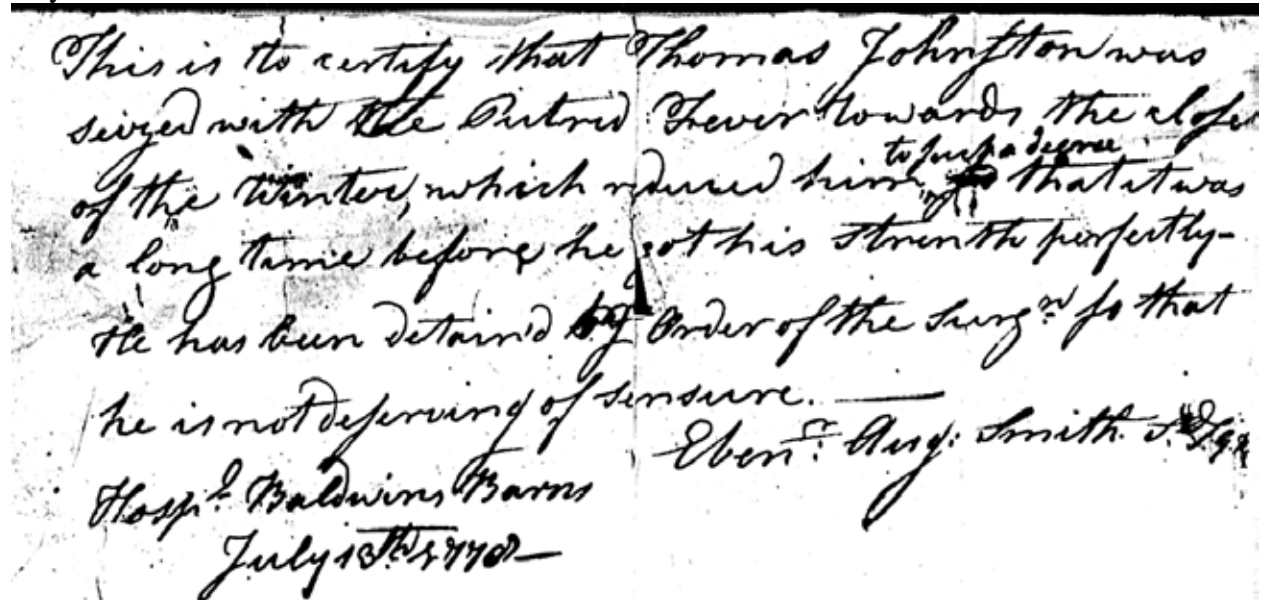 This is to certify that Thomas Johnston was
seized with the Putrid Fever towards the close
to such a degree
of the Winter, which reduced him that it was
a long time before he got his strenth perfectly-
He has been detain'd by Order of the Surgn so that
he is not deserving of sensure. —
Ebenr: Aug: Smith
Hospl Baldwins Barns
July 13th 1778—